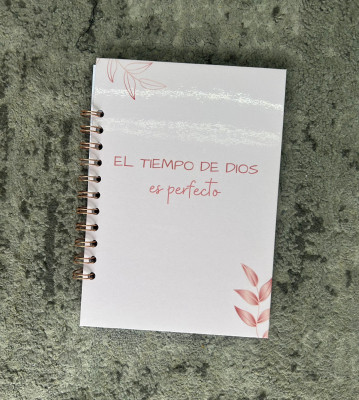 EL TIEMPO DE DIOS
es perfecto